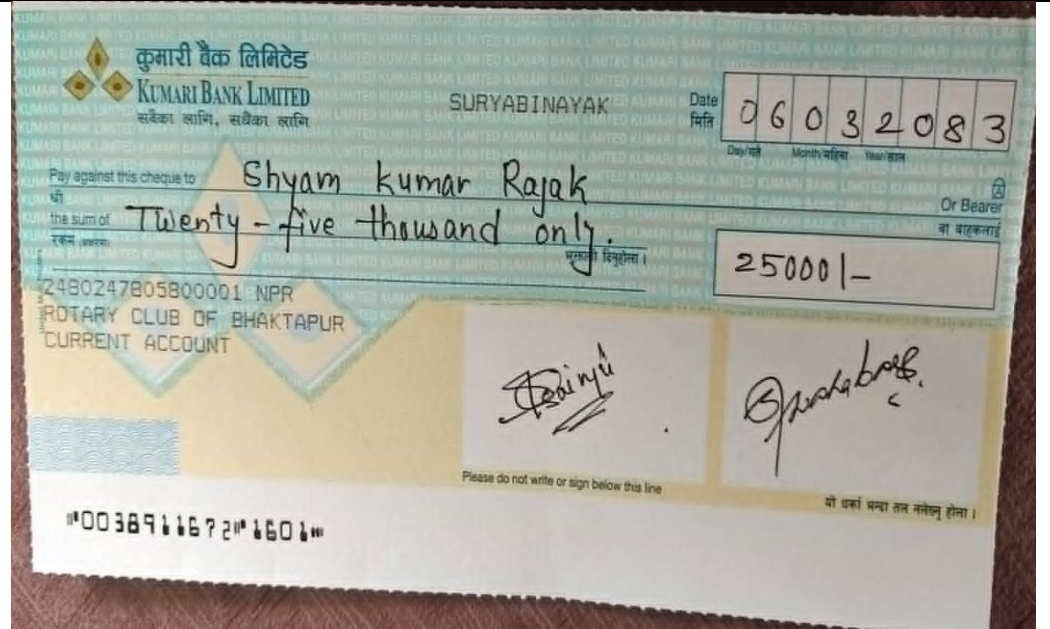 कुमारी बैंक लिमिटेड
KUMARI BANK LIMITED
सबैका लागि, सधैंका लागि
SURYABINAYAK
Date
मिति
06032083
Day/गते Month/महिना Year/साल
Pay against this cheque to Shyam Kumar Rajak
श्री
Or Bearer
the sum of Twenty-five thousand only.
वा वाहकलाई
रकम (अक्षरमा)
भुक्तानी दिनुहोला ।
25000/-
2480247805800001 NPR
ROTARY CLUB OF BHAKTAPUR
CURRENT ACCOUNT
Please do not write or sign below this line
यो धर्का भन्दा तल नलेख्नु होला ।
⑈0038911672⑈1601⑈